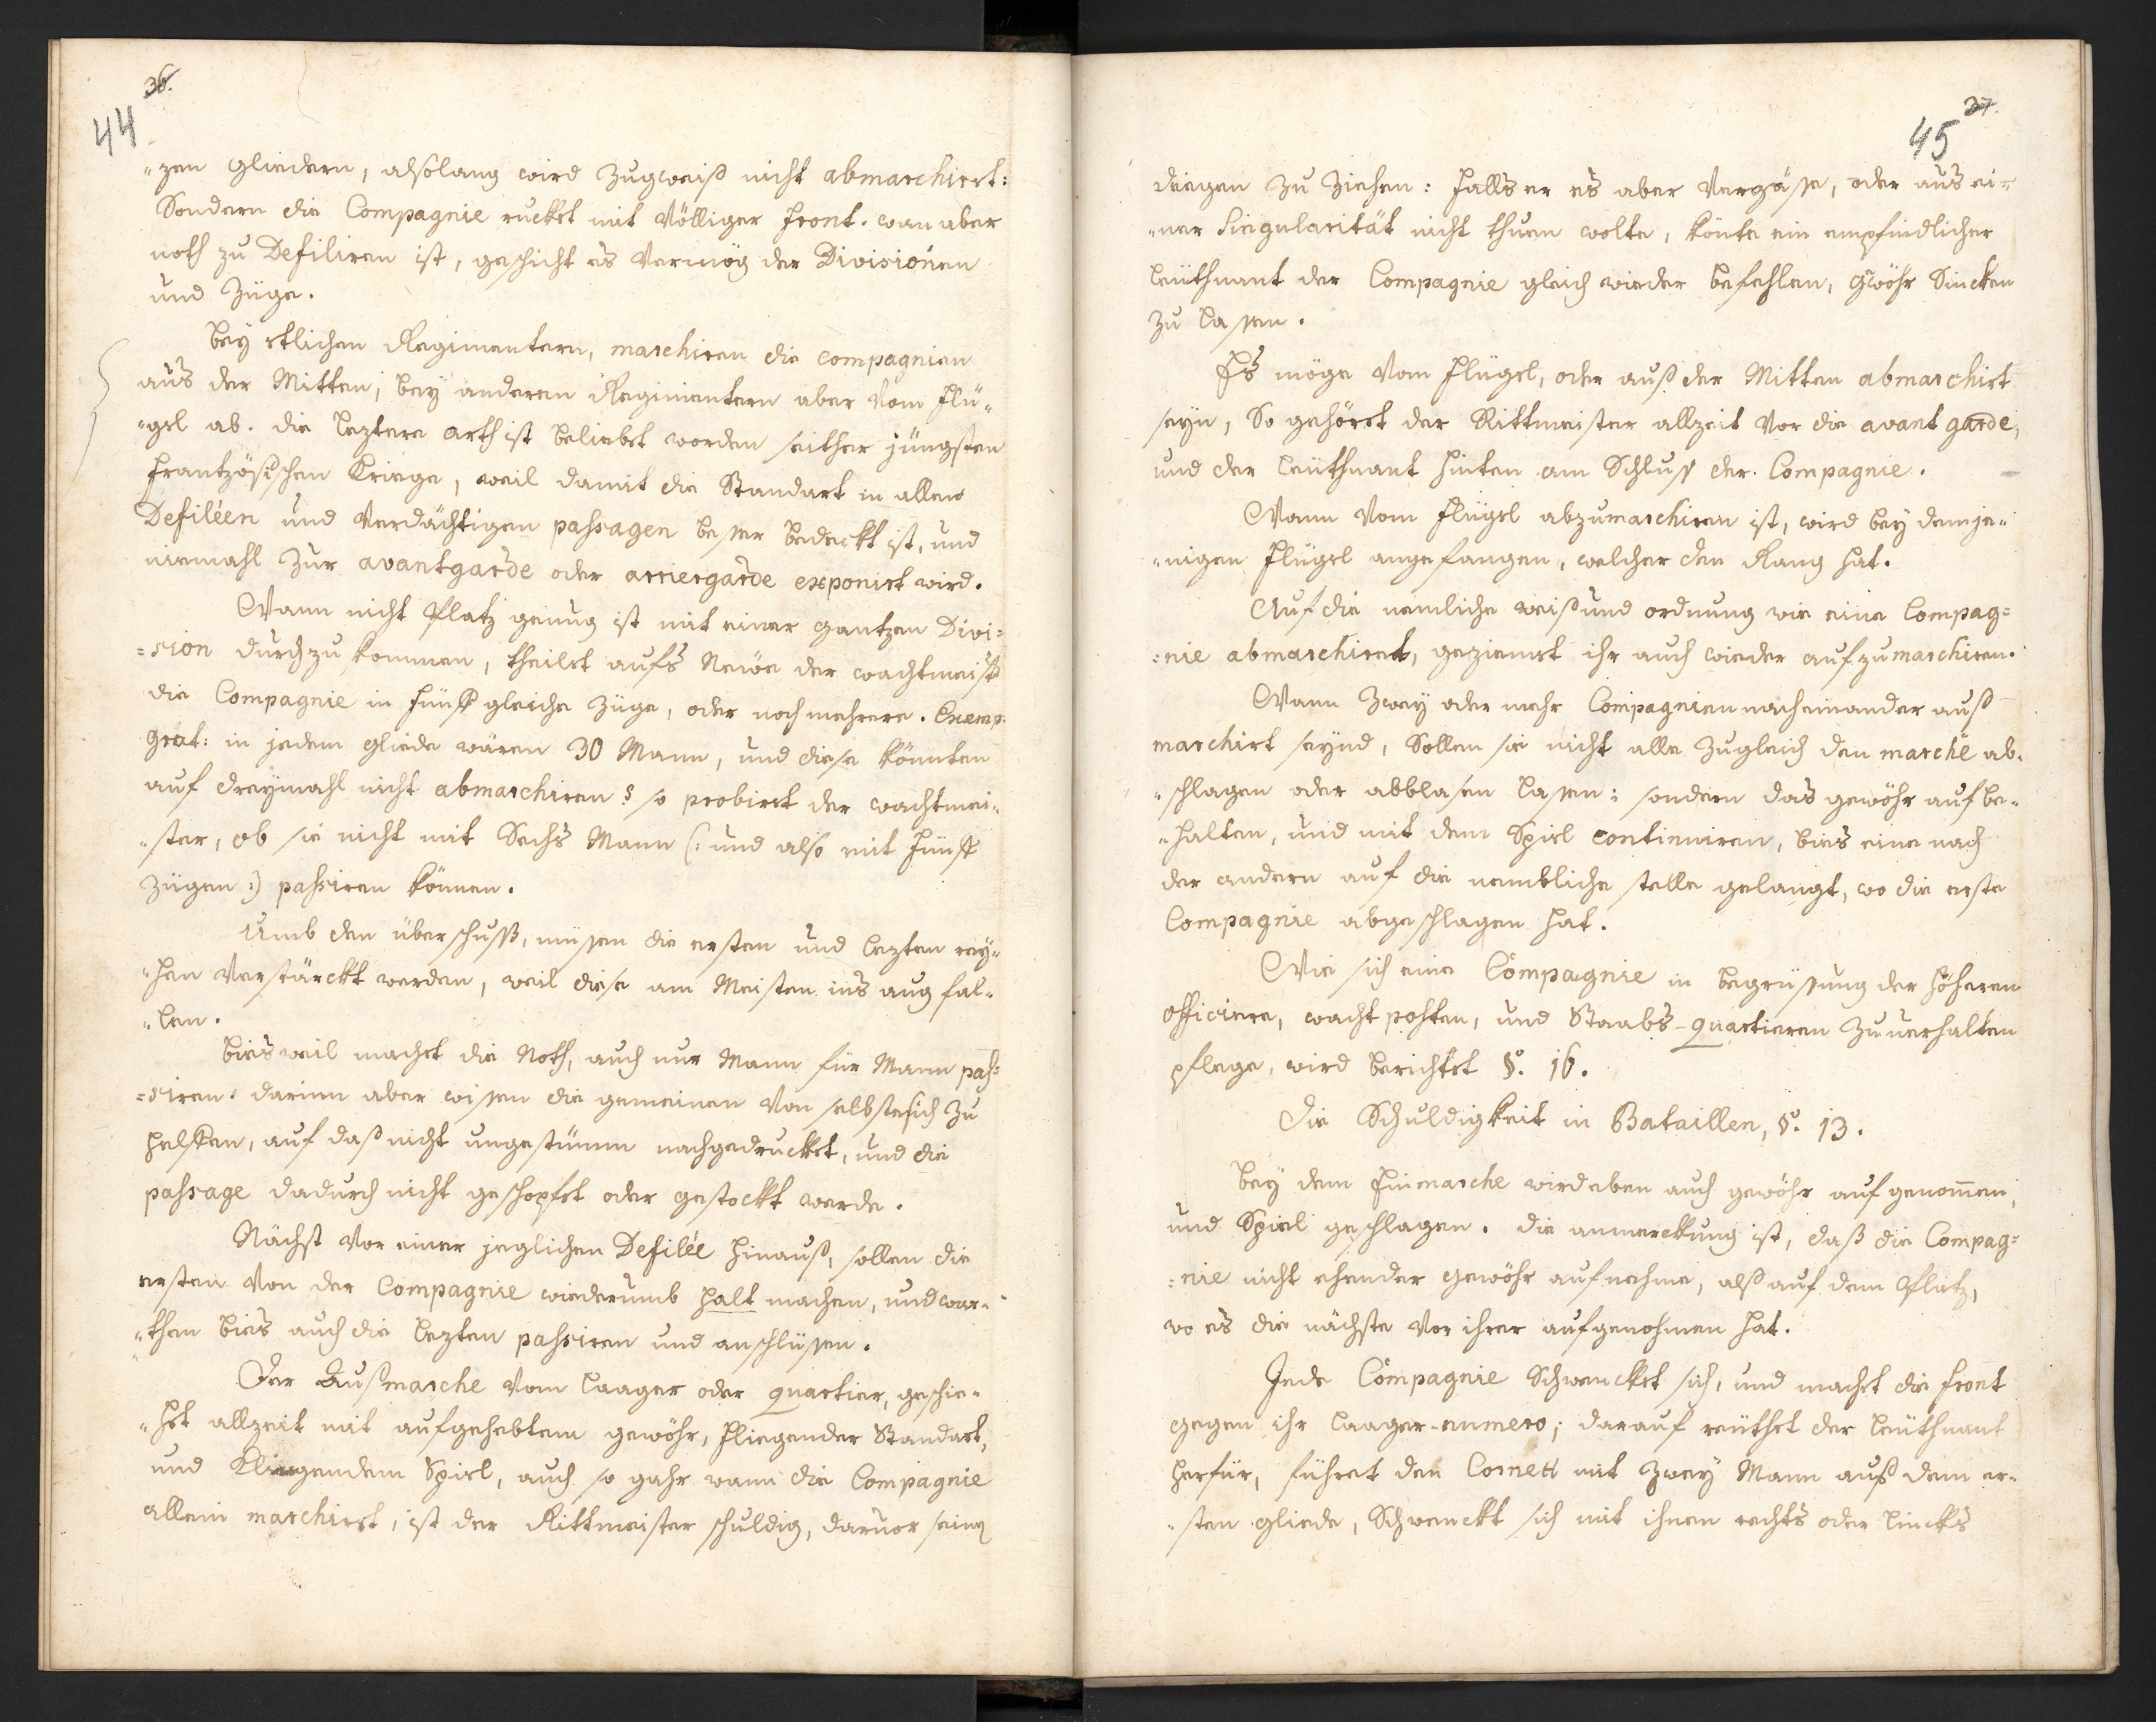 36.
44
"zen gliedern, alsolang wird zugweiß nicht abmarchirt:
Sondern die Compagnie ruckht mit völliger front. wan aber
noth zu Defiliren ist, geschicht es vermög der Divisionen
und züge.
Bey etlichen Regimentern, marchiren die compagnien
aus der Mitten; bey anderen Regimentern aber vom flü„
"gel ab. die leztere arth ist beliebet worden seither jüngsten
frantzösischen Kriege, weil damit die Standart in allen
Defiléen und verdächtigen passagen besser bedeckt ist, und
niemahl zur avantgarde oder arriergarde exponirt wird.
Wann nicht platz genug ist mit einer gantzen Divi=
=sion durchzukommen, theilet aufs Neüe der wachtmeist
die Compagnie in fünff gleiche züge, oder noch mehrere. Exemp:
grat: in jedem gliede wären 30 Mann, und diese könnten
auf dreymahl nicht abmarchiren; so probirt der wachtmei„
"ster, ob sie nicht mit Sechs Mann (: und also mit fünff
zügen :) passiren können.
Umb den überschuß, müssen die ersten und lezten rey„
"hen verstärckt werden, weil diese am Meisten ins aug fal„
"len.
Bisweil machet die Noth, auch nur Mann für Mann pas=
=siren: darinn aber wissen die gemeinen von selbsten sich zu
helffen, auf daß nicht ungestümm nachgedruckhet, und die
passage dadurch nicht geschopfet oder gestockt werde.
Nächst vor einer jeglichen Defilée hinauß, sollen die
ersten von der Compagnie wiederumb halt machen, und war„
"then bies auch die lezten passiren und anschlüssen.
Der Außmarche vom laager oder quartier, geschie„
"het allzeit mit aufgehebtem gewöhr, fliegender Standart,
und Klingendem Spiel, auch so gahr wann die Compagnie
allein marchirt, ist der Rittmeister schuldig, daruor seinen
37.
45
degen zu ziehen: falls er es aber vergässe, oder aus ei„
"ner Singularität nicht thuen wolte, könte ein empfindlicher
leüthnant der Compagnie gleich wieder befehlen, gwöhr Sincken
zu lassen.
Es möge vom flügel, oder auß der Mitten abmarchirt
seyn, So gehöret der Rittmeister allzeit vor die avant garde,
und der leüthnant hinten am Schluß der Compagnie.
Wann vom flügel abzumarchiren ist, wird bey demje„
"nigen flügel angefangen, welcher den Rang hat.
Auf die nemliche weiß und ordnung wie eine Compag=
=nie abmarchiret, geziemet ihr auch wieder aufzumarchiren.
Wann Zwey oder mehr Compagnien nacheinander auß
marchirt seynd, Sollen sie nicht alle zugleich den marche ab„
"schlagen oder abblasen lassen: sondern das gewöhr aufbe„
"halten, und mit dem Spiel continuiren, bies eine nach
der andern auf die nembliche stelle gelangt, wo die erste
Compagnie abgeschlagen hat.
Wie sich eine Compagnie in begrüssung der höheren
officiere, wacht posten, und Staabs-quartieren zuuerhalten
pflege, wird berichtet §. 16.
Die Schuldigkeit in Bataillen, §. 13.
Bey dem Einmarche wird eben auch gewöhr aufgenommen,
und Spiel geschlagen. die anmerckung ist, daß die Compag=
=nie nicht ehender gewöhr aufnehme, alß auf dem platz,
wo es die nächste vor ihrer aufgenohmen hat.
Jede Compagnie Schwenckhet sich, und machet die front
gegen ihr laager-numero; darauf reüthet der leüthnant
herfür, führet den Cornett mit zwey Mann auß dem er„
"sten gliede, Schwenckt sich mit ihnen rechts oder lincks